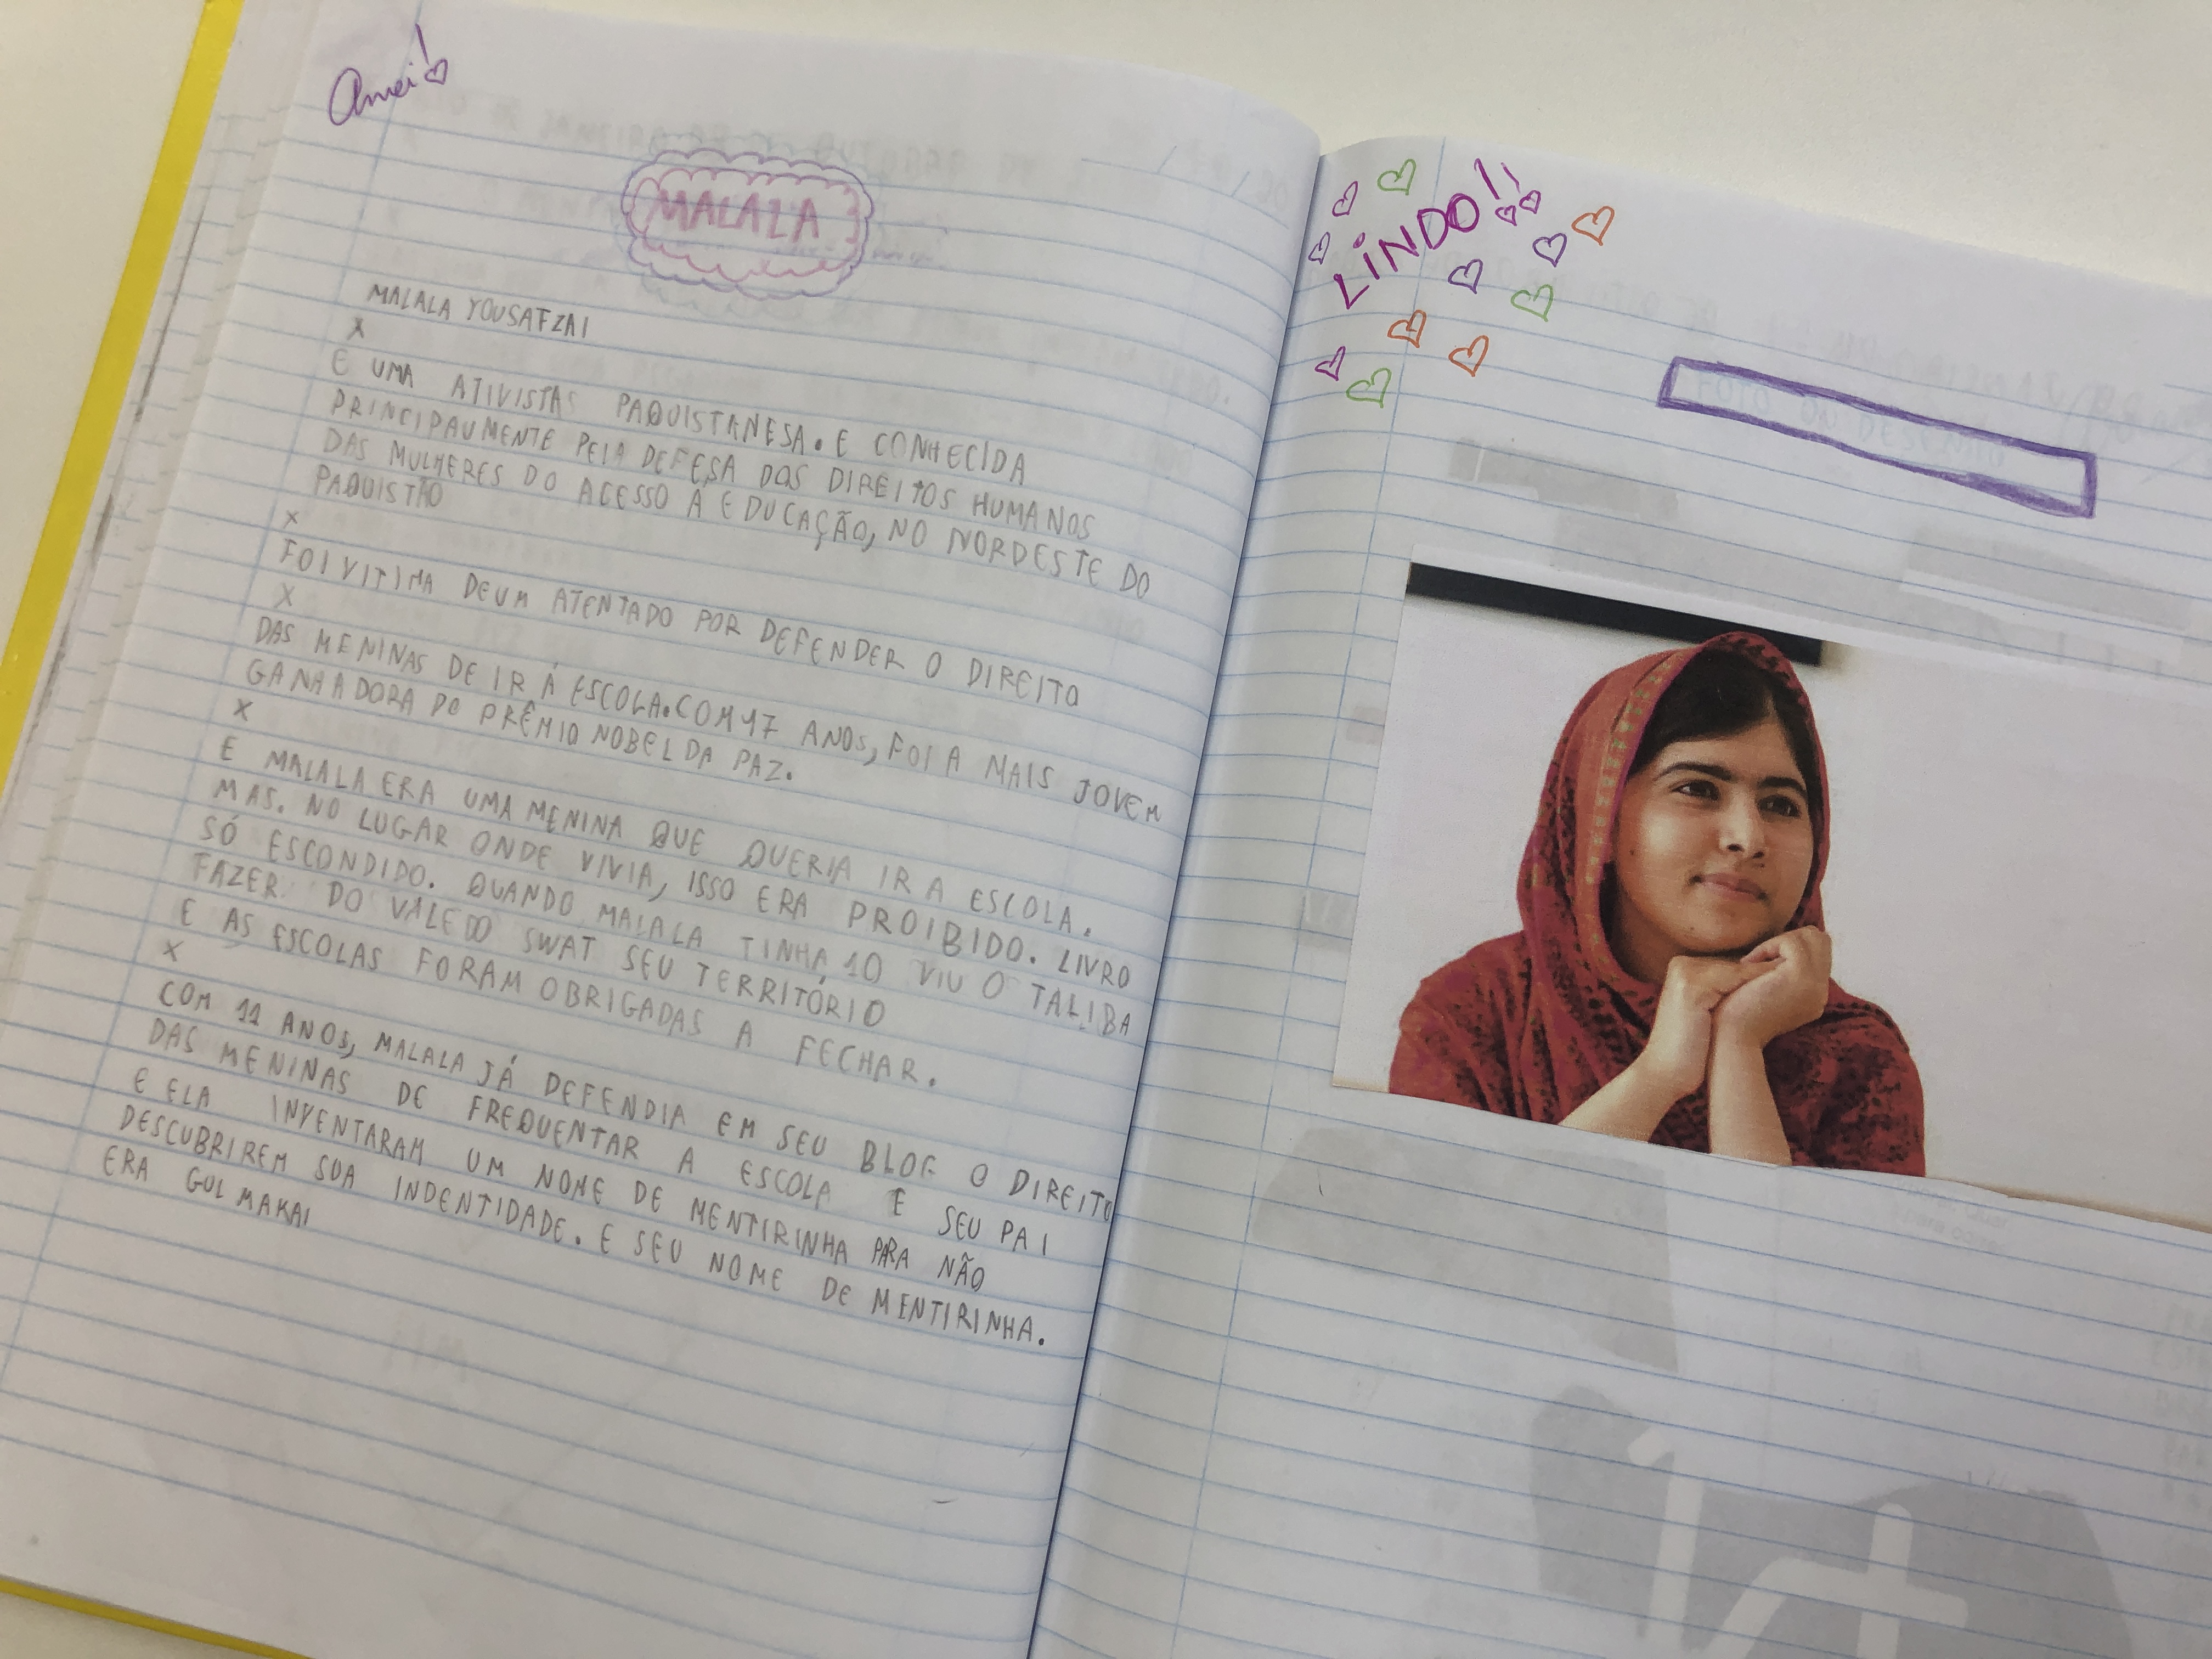 Amei!
MALALA
MALALA YOUSAFZAI
X
E UMA ATIVISTAS PAQUISTANESA. E CONHECIDA
PRINCIPAUMENTE PELA DEFESA DOS DIREITOS HUMANOS
DAS MULHERES DO ACESSO Á EDUCAÇÃO, NO NORDESTE DO
PAQUISTÃO
X
FOI VITIMA DEUM ATENTADO POR DEFENDER O DIREITO
X
DAS MENINAS DE IR Á ESCOLA. COM 17 ANOS, FOI A MAIS JOVEM
GANHADORA DO PRÊMIO NOBEL DA PAZ.
X
E MALALA ERA UMA MENINA QUE QUERIA IR A ESCOLA.
MAS. NO LUGAR ONDE VIVIA, ISSO ERA PROIBIDO. LIVRO
SÓ ESCONDIDO. QUANDO MALALA TINHA 10 VIU O TALIBA
FAZER DO VALE DO SWAT SEU TERRITÓRIO
E AS ESCOLAS FORAM OBRIGADAS A FECHAR.
X
COM 11 ANOS, MALALA JÁ DEFENDIA EM SEU BLOG O DIREITO
DAS MENINAS DE FREQUENTAR A ESCOLA E SEU PAI
E ELA INVENTARAM UM NOME DE MENTIRINHA PARA NÃO
DESCUBRIREM SUA INDENTIDADE. E SEU NOME DE MENTIRINHA.
ERA GUL MAKAI
LINDO!!